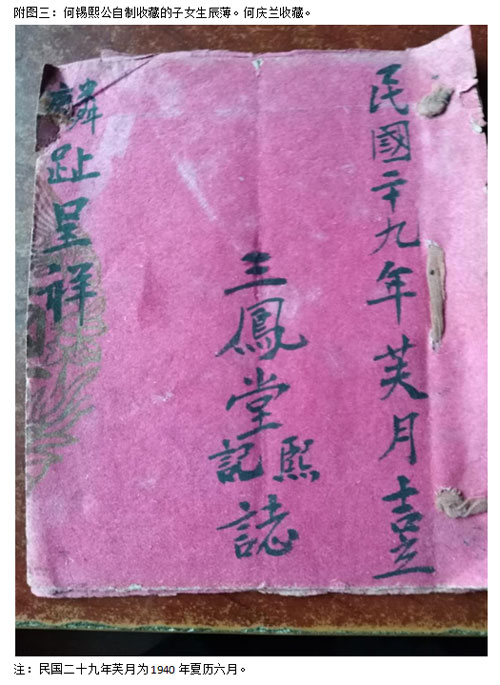 附图三：何锡熙公自制收藏的子女生辰薄。何庆兰收藏。
民國二十九年芙月吉立
三鳳堂熙記誌
麟趾呈祥
注：民国二十九年芙月为1940年夏历六月。